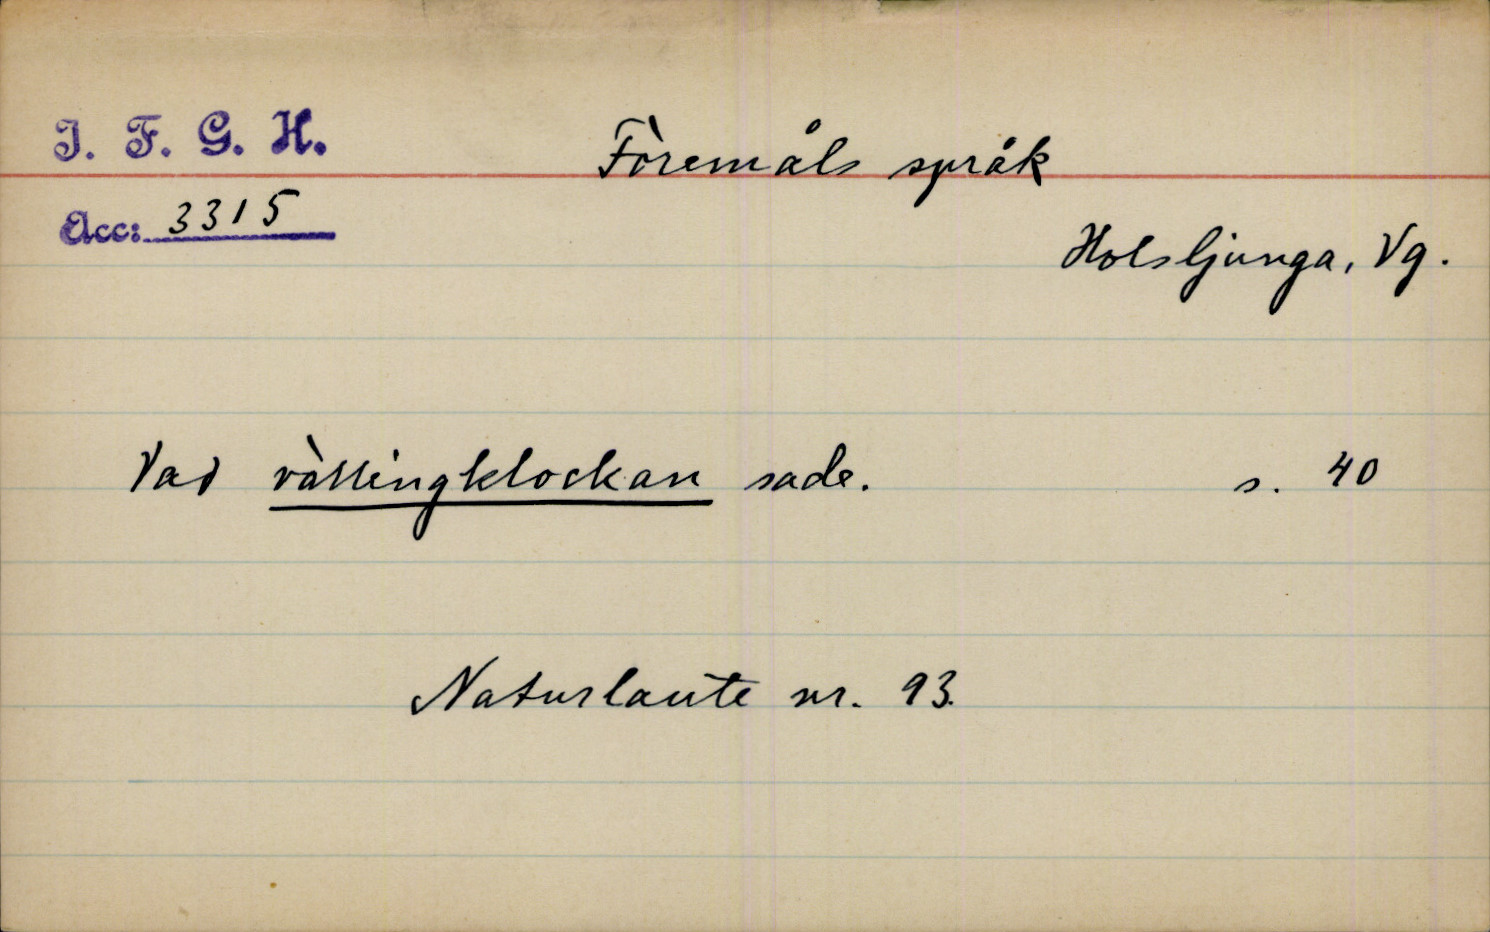 I. F. G. H.
Föremåls språk
Acc: 3315
Holsljunga, Vg.
Vad vällingklockan sade. s. 40
Naturlaute nr. 93.